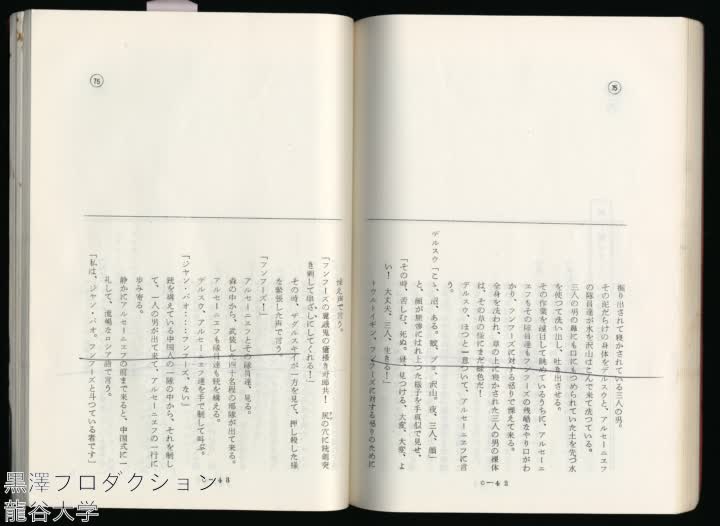 75
掘り出されて寝かされている三人の男。
その泥だらけの身体をデルスウと、アルセーニエフ
の隊員達が水を沢山はこんで来て洗つている。
三人の男の鼻にも口にもつめられていた土を先づ水
を使つて洗い出し、吐き出させる。
その作業を遠目して眺めているうちに、アルセーニ
エフもその隊員達もフンフーズの残酷なやり口がわ
かり、フンフーズに対する怒りで慄えて来る。
全身を洗われ、草の上に寝かされた三人の男の裸体
は、その草の色にまだ緑色だ！
デルスウ、ほつと一息ついて、アルセーニエフに言
う。
デルスウ「こゝ、沼、ある。蚊、ブヨ、沢山。夜、三人、顔」
と、顔が無惨にはれ上つた様子を手真似で見せ、
「その時、苦しむ、死ぬ。昼、見つける、大変、大変、よ
い！　大丈夫、三人、生きる！」
トウルトイギン、フンフーズに対する怒りのために
C—42
76
慄え声で言う。
「フンフーズの
き刺して串ざしにしてくれる！」
その時、ザグルスキイが一方を見て、押し殺した様
な緊張した声で言う。
「フンフーズ！」
アルセーニエフとその隊員達、見る。
森の中から、武装した四十名程の部隊が出て来る。
アルセーニエフも隊員達も銃を構える。
デルスウ、アルセーニエフ達を手で制して叫ぶ。
「ジャン・バオ……フンフーズ、ない」
銃を構えている中国人の一隊の中から、それを制し
て、一人の男が出て来て、アルセーニエフの一行に
歩み寄る。
静かにアルセーニエフの前まで来ると、中国式に一
礼して、流暢なロシア語で言う。
「私は、ジャン・バオ。フンフーズと斗つている者です」
C—43
黒澤プロダクション
龍谷大学